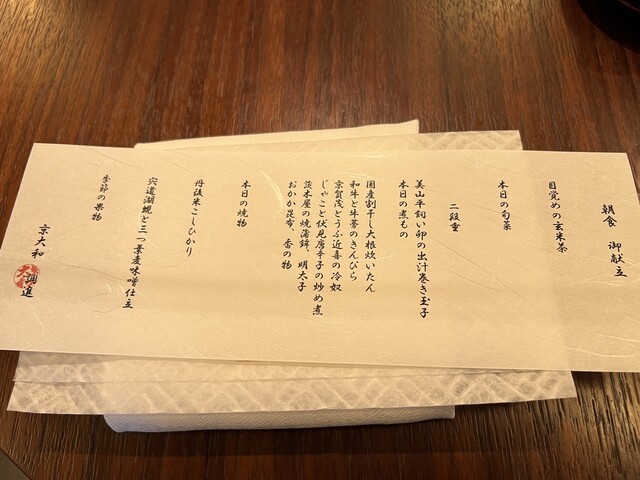 朝食 御献立
目覚めの玄米茶
本日の旬菜
二段重
美山平飼い卵の出汁巻き玉子
本日の煮もの
国産割干し大根炊いたん
和牛と牛蒡のきんぴら
京賀茂とうふ近喜の冷奴
じゃこと伏見唐辛子の炒め煮
茨木屋の焼蒲鉾、明太子
おかか昆布、香の物
本日の焼物
丹後米こしひかり
宍道湖蜆と三つ葉麦味噌仕立
季節の果物
京大和
調進